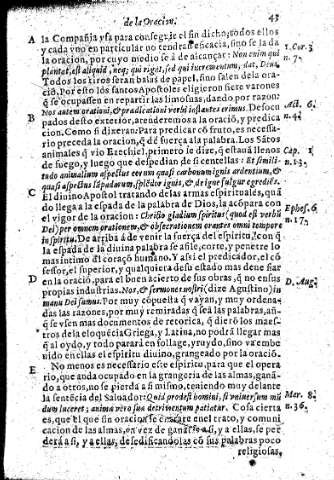 de la Oracion. 43
A la Compañia ysa para conseguir el fin dicho, todos ellos
y cada vno en particular no tendran eficacia, sino se la da
la oracion, por cuyo medio se à de alcançar: Non enim qui 1. Cor. 3
plantat, est aliquid, neq; qui rigat, sed qui incrementum, dat, Deus. n. 7.
Todos los tiros seran balas de papel, sino salen dela ora-
ciō, Por esto los santos Apostoles eligieron siete varones
q̄ se ocupassen en repartir las limosnas, dando por razon:
Nos autem orationi, & prædicationi verbi instantes erimus. Desocu Act. 6.
B pados desto exterior, atenderemos a la oració, y predica n. 4.
cion. Como si dixeran: Para predicar cō fruto, es necessa-
rio preceda la oracion, q̄ dè fuerça a la palabra. Los Sātos
animales q̄ vio Ezechiel, primero le dize, q̄ estauā llenos Cap. 1
de fuego, y luego que despedian de si centellas: Et simili- n. 13.
tudo animalium aspectus eorum quasi carbonum ignis ardentium, &
quasi aspectus lāpadarum, splēdor ignis, & de igne fulgur egrediēs.
C El diuino Apostol tratando de las armas espirituales, quā
do llega a la espada de la palabra de Dios, la acōpara con
el vigor de la oracion: & gladium spiritus (quod est verbū Ephes. 6
Dei) per omnem orationem, & obsecrationem orantes omni tempore n. 17.
in spiritu. De arriba à de venir la fuerça del espiritu, con q̄
la espada de la diuina palabra se afile, corte, y penetre lo
mas intimo dl coraçō humano. Y assi el predicador, el cō
fessor, el superior, y qualquiera deste estado mas deue fiar
D en la oració, para el buen acierto de sus obras, q̄ no en sus
propias industrias. Nos, & sermones nostri (dize Agustino) in D. Aug.
manu Dei sumus. Por muy cōpuesta q̄ vayan, y muy ordena
das las razones, por muy remiradas q̄ seā las palabras, añ-
q̄ se vsen mas documentos de retorica, q̄ dierō los maes-
tros de la eloquēcia Griega, y Latina, no podrā llegar mas
q̄ al oydo, y todo pararà en follage, y ruydo, sino va embe
uido en ellas el espiritu diuino, grangeado por la oració.
E No menos es necessario este espiritu, para que el opera
rio, que anda ocupado en la grangeria de las almas, ganā-
do a otros, no se pierda a si mismo, teniendo muy delante
la sentēcia del Saluador: Quid prodest homini, si vniuersum mū Mar. 8.
dum lucret; animæ vero suæ detrimentum patiatur. Cosa cierta n. 36.
es, que el que sin oracion se entrare en el trato, y comuni
cacion de las almas, en vez de ganarse a si, y a ellas, se per
derà a si, y a ellas, desedificandolas cō sus palabras poco
religiosas,